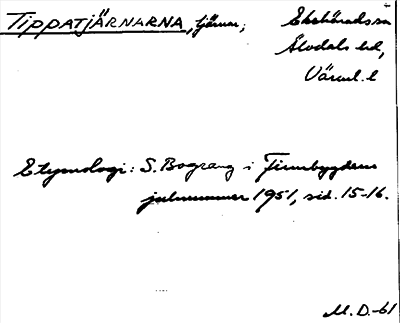 TIPPATJÄRNARNA, tjärnar; Ekshärads sn
Älvdals hd,
Värml. l
Etymologi: S. Bograng i Finnbygdens
julnummer 1951, sid. 15-16.
M. D. -61